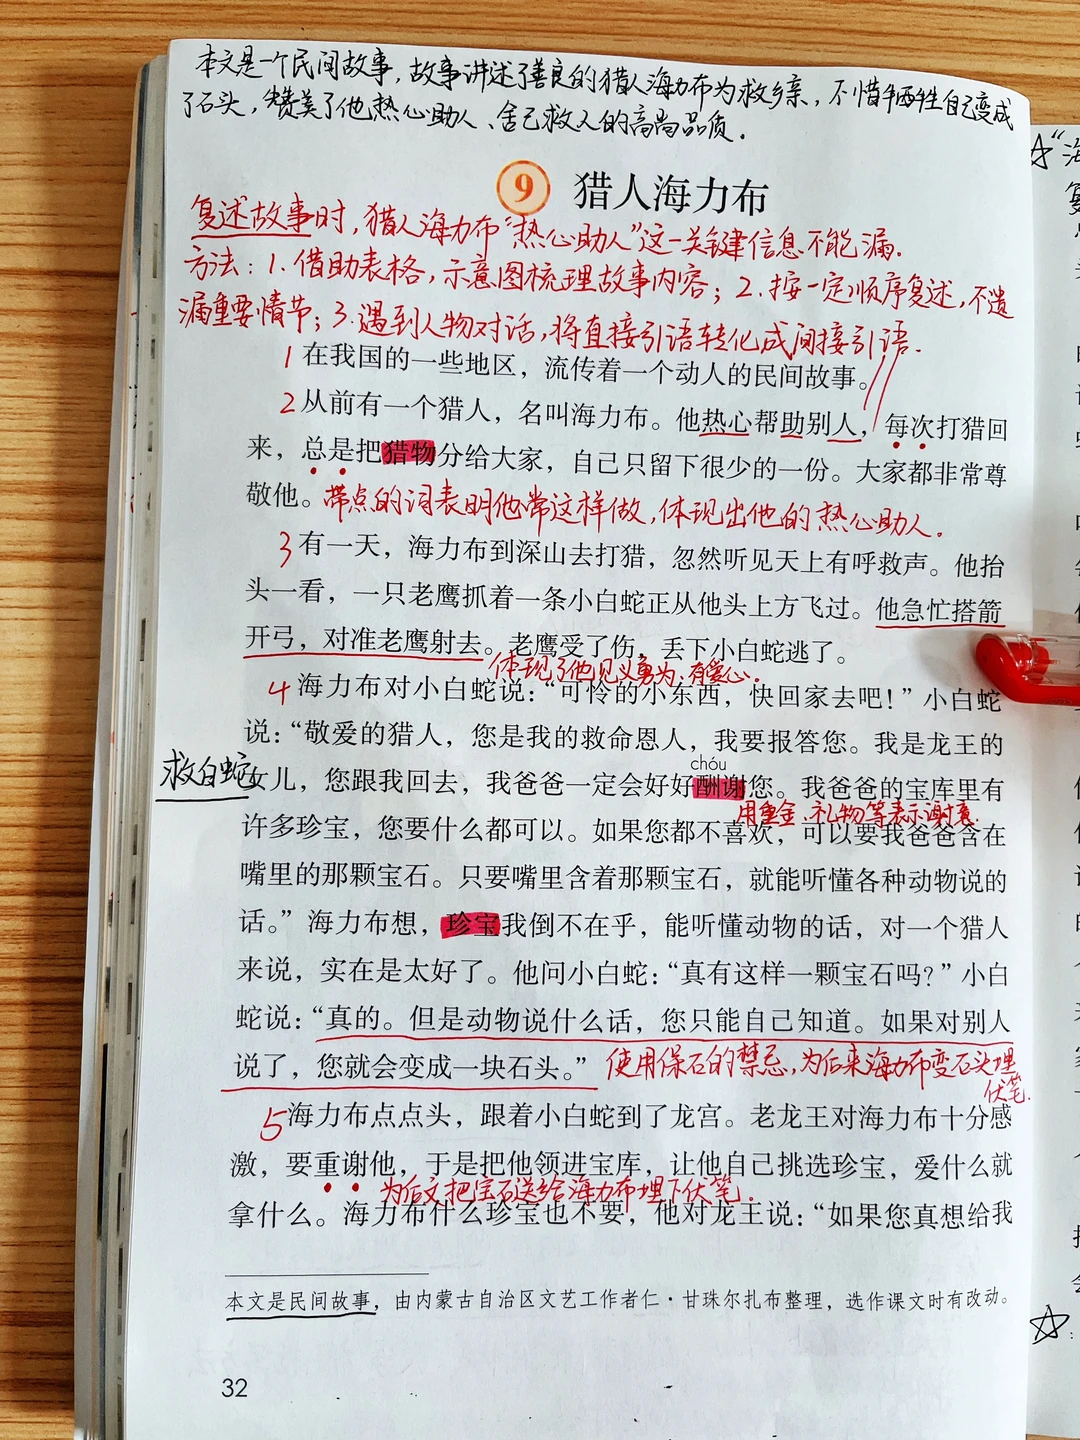 本文是一个民间故事，故事讲述了善良的猎人海力布为救乡亲，不惜牺牲自己变成
了石头，赞美了他热心助人、舍己救人的高尚品质。
9 猎人海力布
复述故事时，猎人海力布“热心助人”这一关键信息不能漏.
方法：1.借助表格，示意图梳理故事内容；2.按一定顺序复述，不遗
漏重要情节；3.遇到人物对话，将直接引语转化成间接引语.
1 在我国的一些地区，流传着一个动人的民间故事。
2 从前有一个猎人，名叫海力布。他热心帮助别人，每次打猎回
来，总是把猎物分给大家，自己只留下很少的一份。大家都非常尊
敬他。带点的词表明他常这样做，体现出他的热心助人.
3 有一天，海力布到深山去打猎，忽然听见天上有呼救声。他抬
头一看，一只老鹰抓着一条小白蛇正从他头上方飞过。他急忙搭箭
开弓，对准老鹰射去。老鹰受了伤，丢下小白蛇逃了。
体现了他见义勇为、有爱心.
4 海力布对小白蛇说：“可怜的小东西，快回家去吧！”小白蛇
说：“敬爱的猎人，您是我的救命恩人，我要报答您。我是龙王的
chóu
救白蛇
女儿，您跟我回去，我爸爸一定会好好酬谢您。我爸爸的宝库里有
用重金、礼物等表示谢意.
许多珍宝，您要什么都可以。如果您都不喜欢，可以要我爸爸含在
嘴里的那颗宝石。只要嘴里含着那颗宝石，就能听懂各种动物说的
话。”海力布想，珍宝我倒不在乎，能听懂动物的话，对一个猎人
来说，实在是太好了。他问小白蛇：“真有这样一颗宝石吗？”小白
蛇说：“真的。但是动物说什么话，您只能自己知道。如果对别人
说了，您就会变成一块石头。”使用保石的禁忌，为后来海力布变石头埋
伏笔.
5 海力布点点头，跟着小白蛇到了龙宫。老龙王对海力布十分感
激，要重谢他，于是把他领进宝库，让他自己挑选珍宝，爱什么就
为后文把宝石送给海力布埋下伏笔.
拿什么。海力布什么珍宝也不要，他对龙王说：“如果您真想给我
本文是民间故事，由内蒙古自治区文艺工作者仁·甘珠尔扎布整理，选作课文时有改动。
32
☆“海